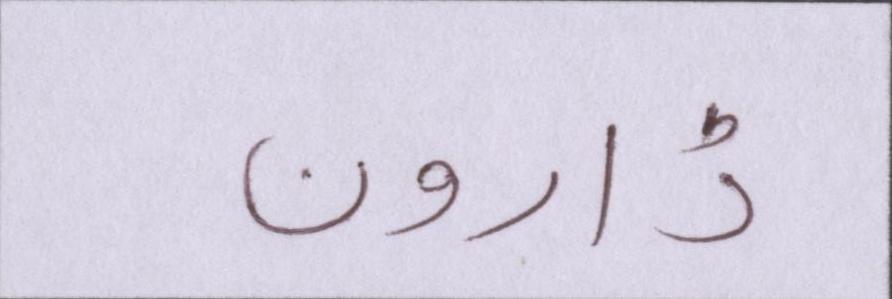 ڈارون